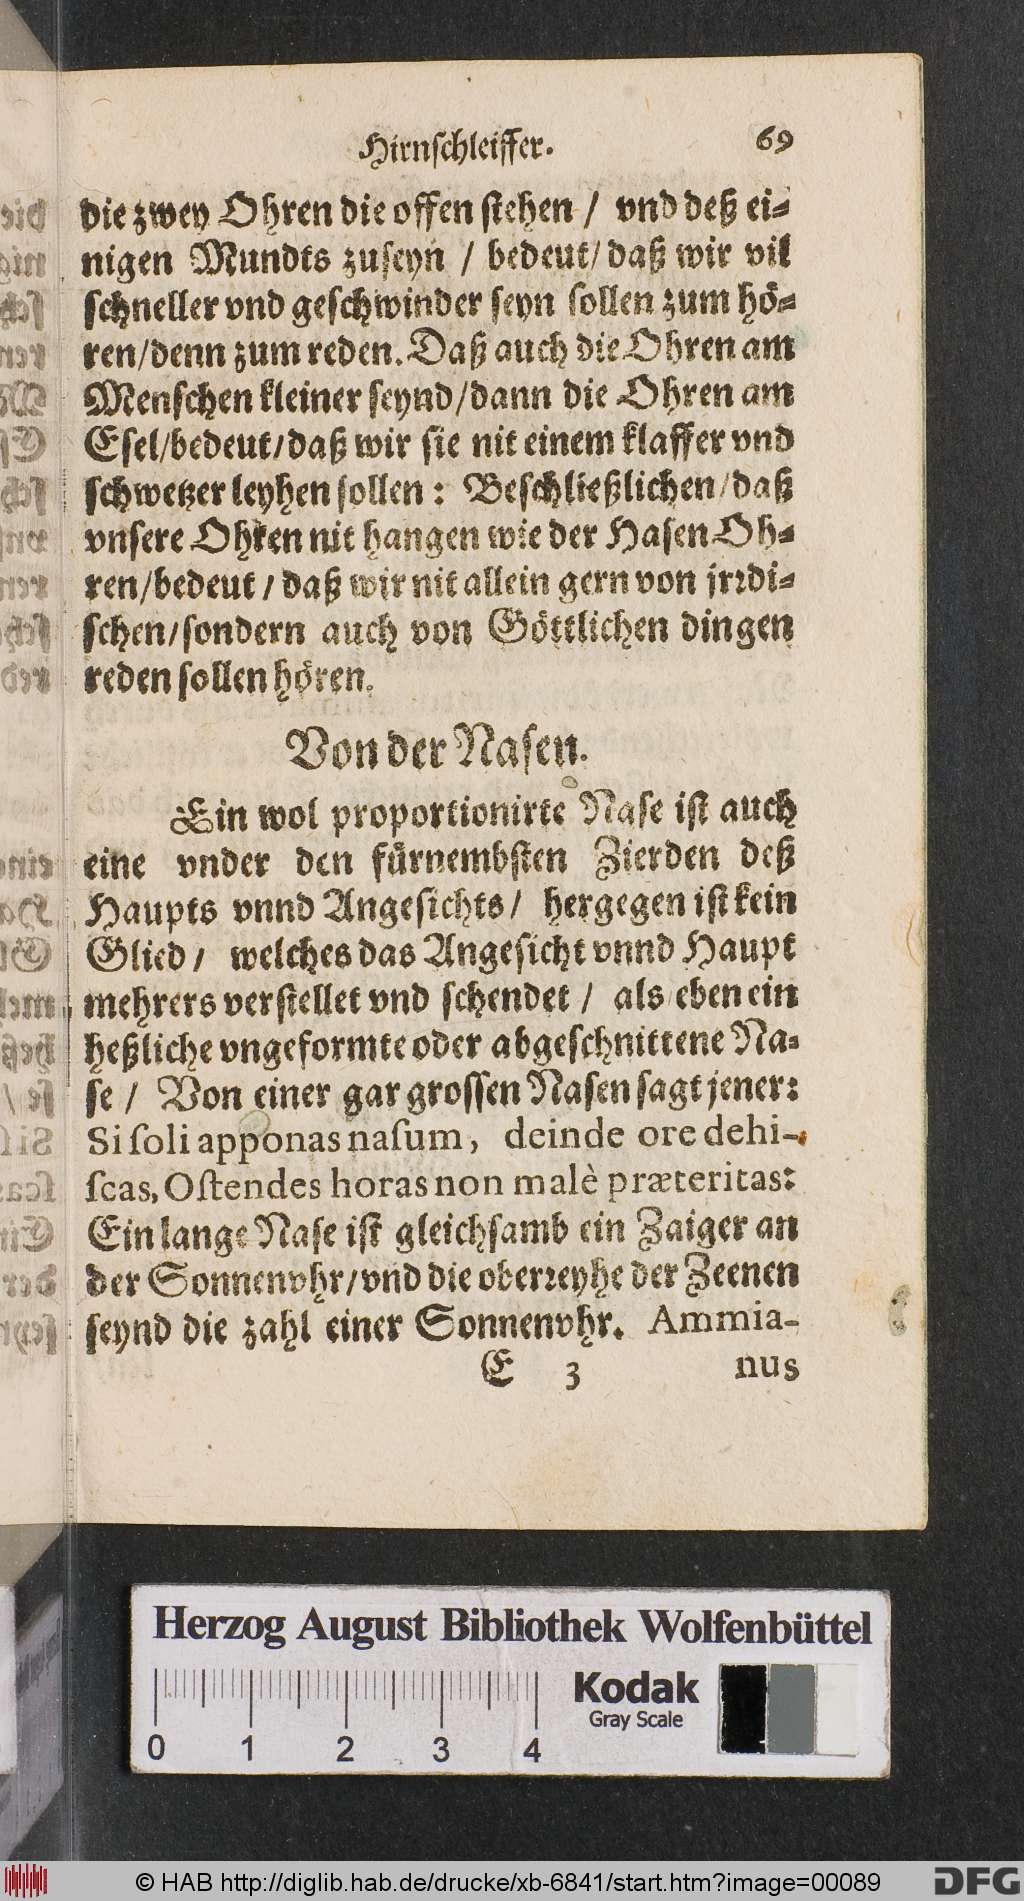 Hirnſchleiffer. 69
die zwey Ohren die offen ſtehen / vnd deß ei-
nigen Mundts zuſeyn / bedeut / daß wir vil
ſchneller vnd geſchwinder ſeyn ſollen zum hö-
ren / denn zum reden. Daß auch die Ohren am
Menſchen kleiner ſeynd / dann die Ohren am
Eſel / bedeut / daß wir ſie nit einem klaffer vnd
ſchwetzer leyhen ſollen : Beſchließlichen / daß
vnſere Ohren nit hangen wie der Haſen Oh-
ren / bedeut / daß wir nit allein gern von jrꝛdi-
ſchen / ſondern auch von Göttlichen dingen
reden ſollen hören.
Von der Naſen.
Ein wol proportionirte Naſe iſt auch
eine vnder den fürnembſten Zierden deß
Haupts vnnd Angeſichts / hergegen iſt kein
Glied / welches das Angeſicht vnnd Haupt
mehrers verſtellet vnd ſchendet / als eben ein
heßliche vngeformte oder abgeſchnittene Na-
ſe / Von einer gar groſſen Naſen ſagt jener:
Si ſoli apponas naſum, deinde ore dehi-
ſcas, Oſtendes horas non malè præteritas:
Ein lange Naſe iſt gleichſamb ein Zaiger an
der Sonnenvhr / vnd die oberꝛeyhe der Zeenen
ſeynd die zahl einer Sonnenvhr. Ammia-
E 3 nus
Herzog August Bibliothek Wolfenbüttel
Kodak
Gray Scale
0 1 2 3 4
© HAB http://diglib.hab.de/drucke/xb-6841/start.htm?image=00089
DFG